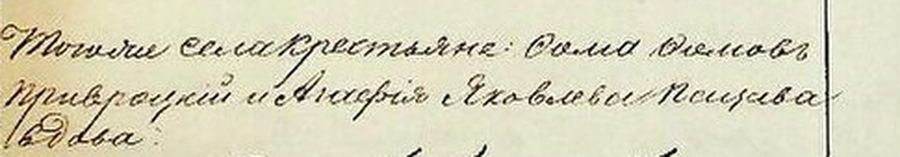 Тогоже села крестьяне: Ѳома Ѳомовъ
Привроцкій и Агаѳія Яковлева
вдова.